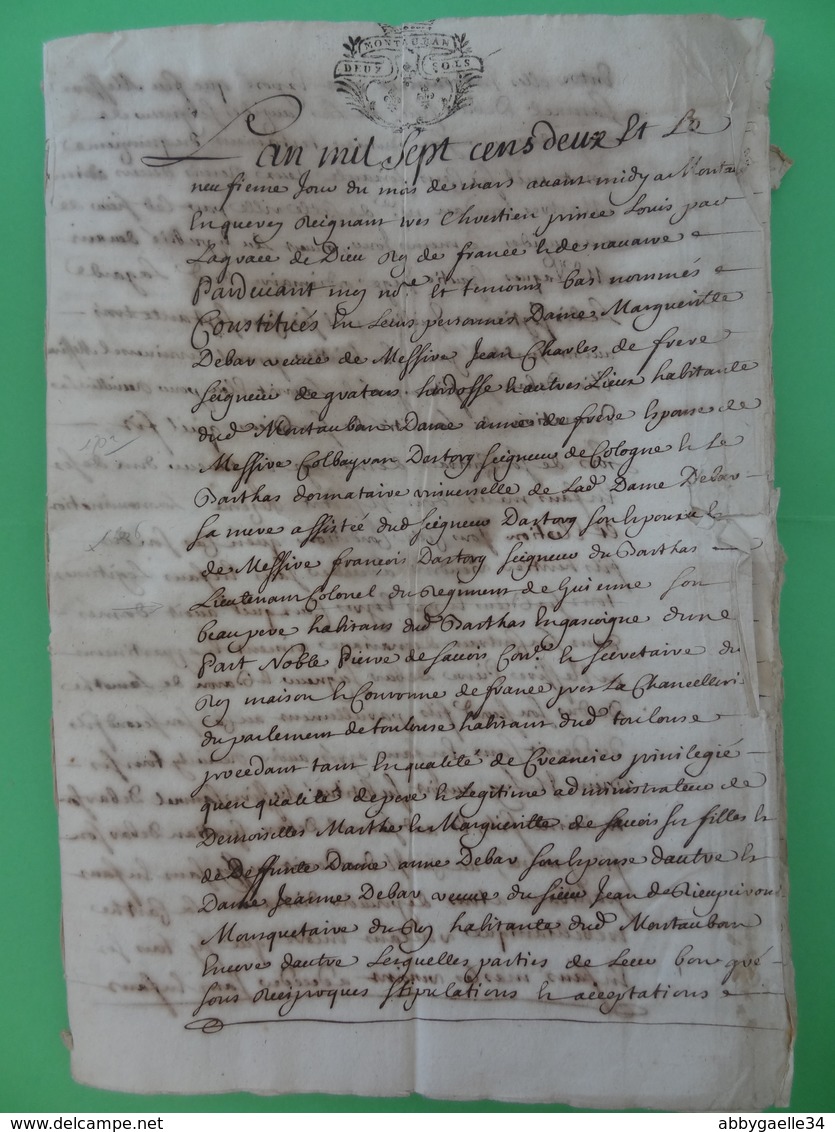 MONTAUBAN
DEUX SOLS
Lan mil Sept cens deux Et Le
neufieme Jour du mois de mars auant midy a Montau
En quercy Reignant tres Chrestien prince Louis par
La grace de Dieu Roy de france & de nauarre
Pardeuant moy nore. et temoins bas nommés
Constitués En Leurs personnes Dame Margueritte
Debar veuue de Messire Jean Charles de frere
Seigneur de hardosse & autres Lieux habitante
dud Montauban Dame anne de frere Espouse de
Messire Dastorg Seigneur de Cologne & Le
Barthas donnataire vniuerselle de Lad Dame Debar
Sa mere assistée dud Seigneur Dastorg Son Espoux &
de Messire françois Dastorg Seigneur du Barthas
Lieutenant Colonel du Regiment de Guienne Son
beau pere habitans dud Barthas En gascoigne dune
Part Noble Pierre de Conr. & Secretaire du
Roy maison & Couronne de france pres La Chancelleri
du parlement de toulouse habitant dud toulouse
procedant tant En qualité de Creancier priuilegié
quen qualité de pere & Legitime administrateur de
Demoiselles Marthe & Margueritte de Ses filles &
de Deffunte Dame anne Debar Son Espouse dautre &
Dame Jeanne Debar veuue du Sieur Jean de
Mousquetaire du Roy habitante dud Montauban
Encore dautre Lesquelles parties de Leur bon gré
Sous Reciproques Stipulations & acceptations
www.delcampe.net
abbygaelle34